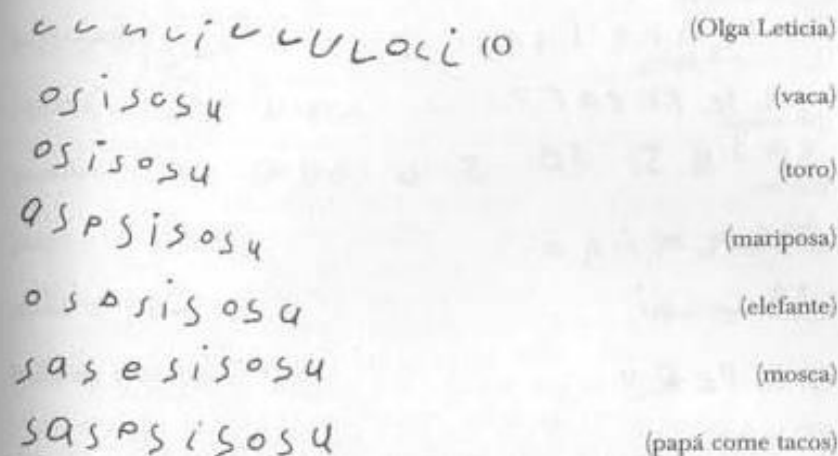 (Olga Leticia)
osisosu (vaca)
osisosu (toro)
asesisosu (mariposa)
osasisosa (elefante)
sasesisosu (mosca)
sasesisosu (papá come tacos)